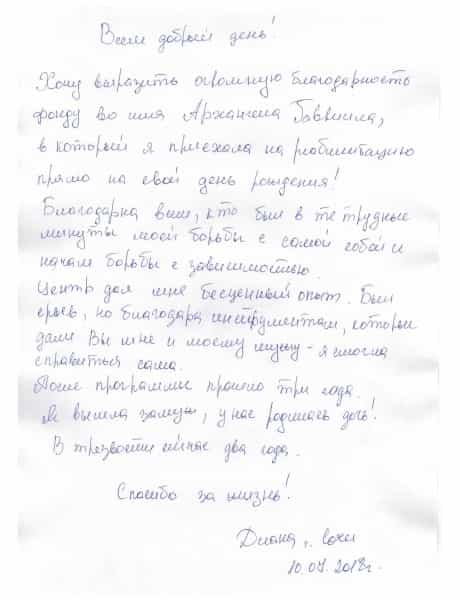 Всем добрый день!
Хочу выразить огромную благодарность
фонду во имя Архангела Гавриила,
в который я приехала на реабилитацию
прямо на свой день рождения!
Благодарна всем, кто был в те трудные
минуты моей борьбы с самой собой и
начал борьбы с зависимостью.
Центр дал мне бесценный опыт. Был
срыв, но благодаря инструментам, которые
дали Вы мне и моему мужу - я смогла
справиться сама.
После программы прошло три года.
Я вышла замуж, у нас родилась дочь!
В трезвости сейчас два года.
Спасибо за жизнь!
Диана г. Сочи
10.07.2018г.